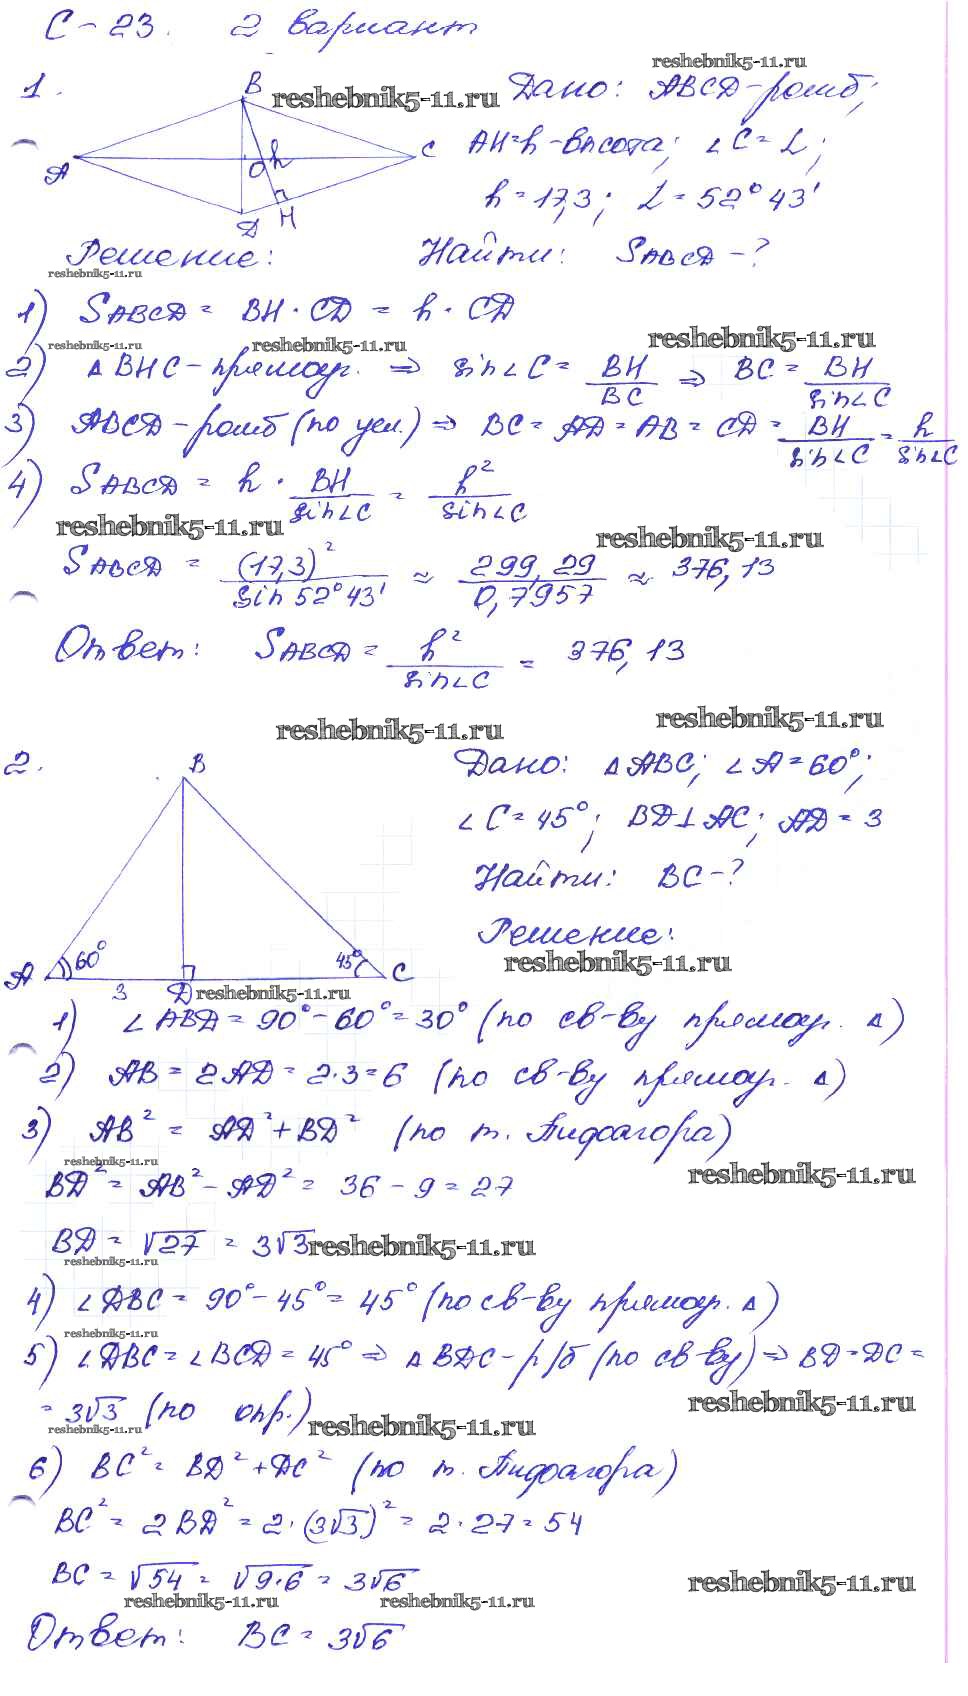 С-23. 2 вариант
reshebnik5-11.ru
1.
B
reshebnik5-11.ru
Дано: ABCD-ромб;
A
O
h
C
D
H
AH=h-высота; ∠C=L;
h=17,3; L=52°43'
Решение:
Найти: SABCD-?
reshebnik5-11.ru
1) SABCD = BH·CD = h·CD
reshebnik5-11.ru
reshebnik5-11.ru
reshebnik5-11.ru
2) △BHC-прямоуг. ⇒ sin∠C = BH/BC ⇒ BC = BH/sin∠C
3) ABCD-ромб (по усл.) ⇒ BC=AD=AB=CD = BH/sin∠C = h/sin∠C
4) SABCD = h · BH/sin∠C = h²/sin∠C
reshebnik5-11.ru
reshebnik5-11.ru
SABCD = (17,3)²/sin 52°43' ≈ 299,29/0,7957 ≈ 376,13
Ответ: SABCD = h²/sin∠C = 376,13
reshebnik5-11.ru
reshebnik5-11.ru
2.
B
Дано: △ABC; ∠A=60°;
∠C=45°; BD⊥AC; AD=3
Найти: BC-?
Решение:
reshebnik5-11.ru
A
60°
45°
C
3
D
reshebnik5-11.ru
1) ∠ABD=90°-60°=30° (по св-ву прямоуг. △)
2) AB=2AD=2·3=6 (по св-ву прямоуг. △)
3) AB² = AD²+BD² (по т. Пифагора)
reshebnik5-11.ru
reshebnik5-11.ru
BD²=AB²-AD²= 36-9=27
BD=√27 = 3√3
reshebnik5-11.ru
reshebnik5-11.ru
4) ∠DBC=90°-45°=45° (по св-ву прямоуг. △)
reshebnik5-11.ru
5) ∠DBC=∠BCD=45° ⇒ △BDC-р/б (по св-ву) ⇒ BD=DC=
reshebnik5-11.ru
=3√3 (по опр.)
reshebnik5-11.ru
reshebnik5-11.ru
6) BC²=BD²+DC² (по т. Пифагора)
BC²=2BD²=2·(3√3)²=2·27=54
BC=√54=√9·6=3√6
reshebnik5-11.ru
reshebnik5-11.ru
reshebnik5-11.ru
Ответ: BC=3√6